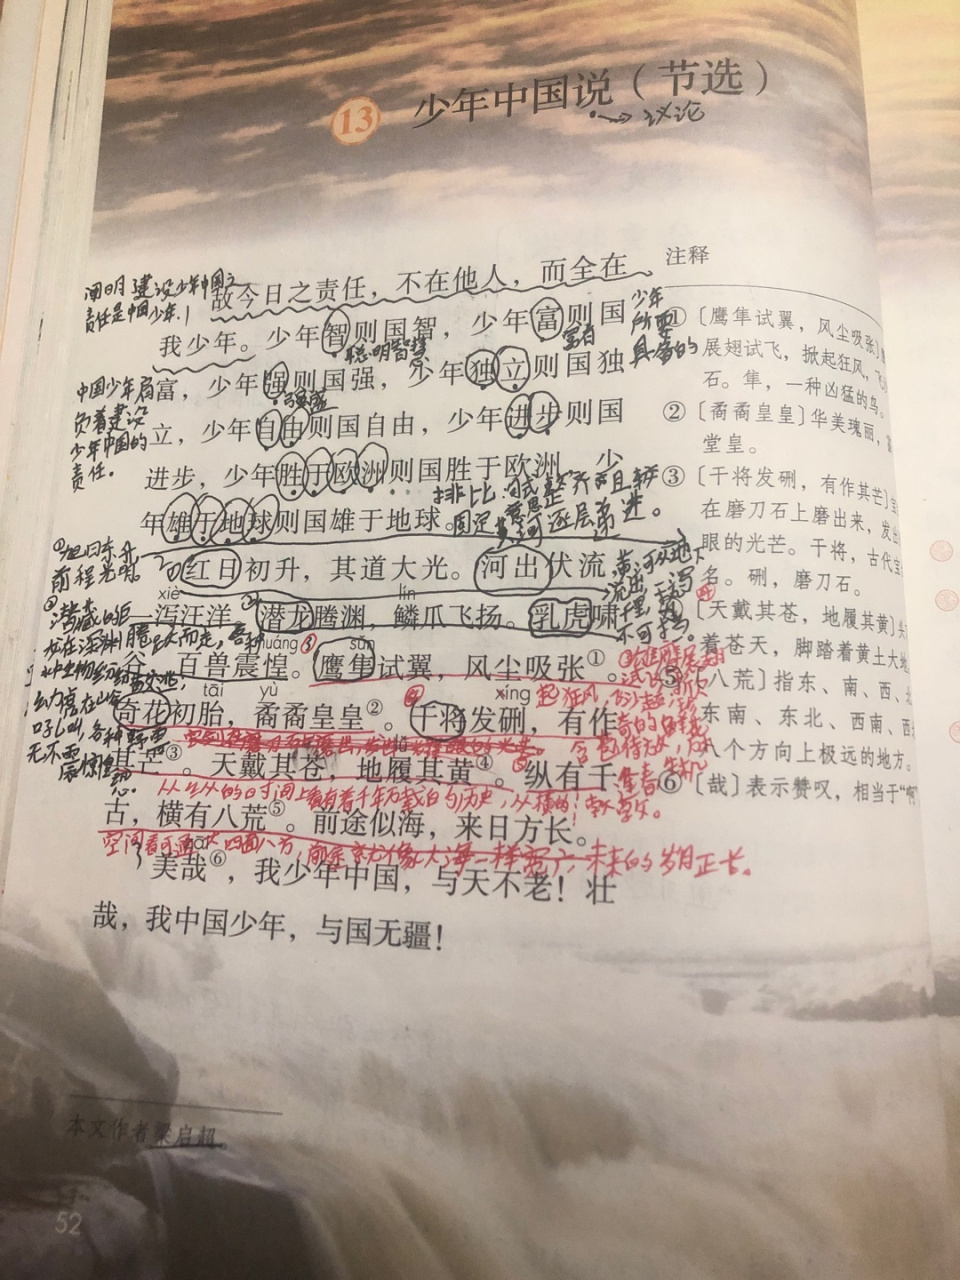 13 少年中国说（节选）
→议论
故今日之责任，不在他人，而全在
我少年。少年智则国智，少年富则国
富，少年强则国强，少年独立则国独
立，少年自由则国自由，少年进步则国
进步，少年胜于欧洲则国胜于欧洲，少
年雄于地球则国雄于地球。
红日初升，其道大光。河出伏流，
xiè lín
一泻汪洋。潜龙腾渊，鳞爪飞扬。乳虎啸
huáng sǔn
谷，百兽震惶。鹰隼试翼，风尘吸张①。
tāi yù xíng
奇花初胎，矞矞皇皇②。干将发硎，有作
其芒③。天戴其苍，地履其黄④。纵有千
古，横有八荒⑤。前途似海，来日方长。
美哉⑥，我少年中国，与天不老！壮
哉，我中国少年，与国无疆！
阐明建设少年中国之
责任是中国少年
中国少年肩
负着建设
少年中国的
责任。
聪明智慧
富有
强盛
少年
所要
具备的
排比 句式整齐
逐层递进。
前程光明
无不震惊惶
从纵的时间上看有着千年万载的历史，从横的
空间看可通达四面八方，前途就像大海一样宽广 未来的岁月正长。
注释
①〔鹰隼试翼，风尘吸张〕
展翅试飞，掀起狂风，飞
石。隼，一种凶猛的鸟。
②〔矞矞皇皇〕华美瑰丽，
堂皇。
③〔干将发硎，有作其芒〕宝
在磨刀石上磨出来，发出
眼的光芒。干将，古代宝
名。硎，磨刀石。
〔天戴其苍，地履其黄〕头
着苍天，脚踏着黄土大地
⑤〔八荒〕指东、南、西、北
东南、东北、西南、西
八个方向上极远的地方。
⑥〔哉〕表示赞叹，相当于“啊
本文作者梁启超。
52